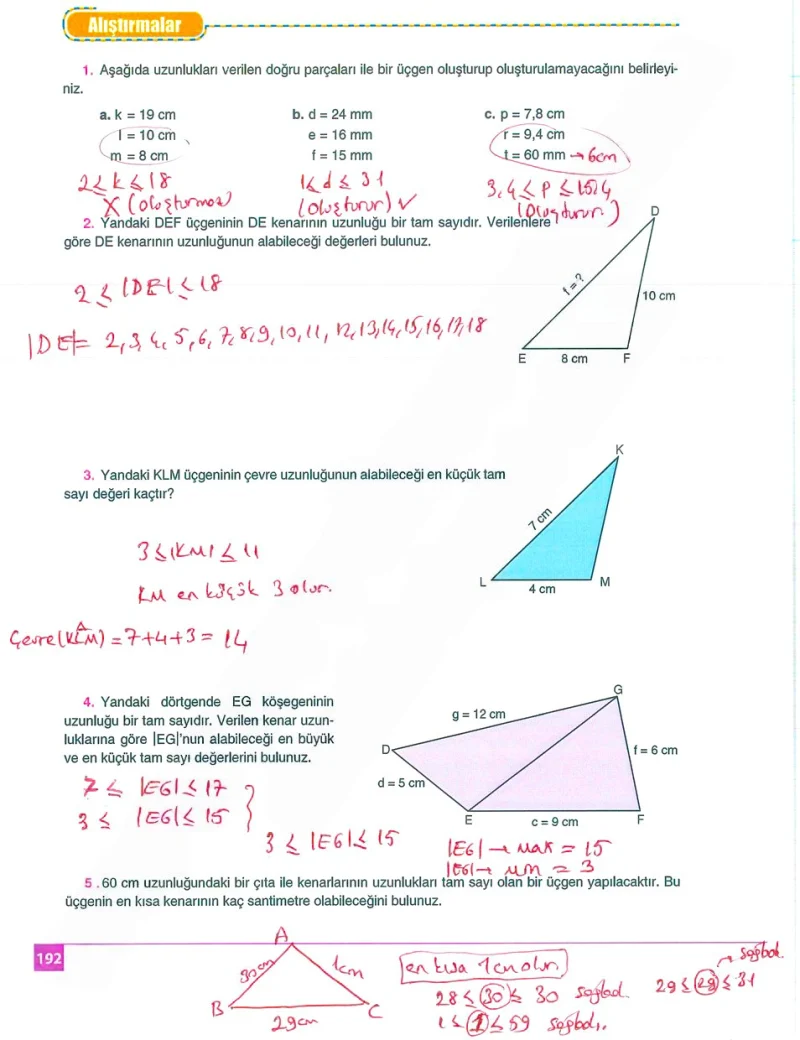 Alıştırmalar
1. Aşağıda uzunlukları verilen doğru parçaları ile bir üçgen oluşturup oluşturulamayacağını belirleyi-
niz.
a. k = 19 cm
l = 10 cm
m = 8 cm
2 ≤ k ≤ 18
X (oluşturmaz)
b. d = 24 mm
e = 16 mm
f = 15 mm
1 ≤ d ≤ 31
(oluşturur) ✓
c. p = 7,8 cm
r = 9,4 cm
t = 60 mm → 6cm
3,4 ≤ p ≤ 15,4
(oluşturur)
2. Yandaki DEF üçgeninin DE kenarının uzunluğu bir tam sayıdır. Verilenlere
göre DE kenarının uzunluğunun alabileceği değerleri bulunuz.
D
f = ?
10 cm
E
8 cm
F
2 ≤ |DE| ≤ 18
|DE| = 2,3,4,5,6,7,8,9,10,11,12,13,14,15,16,17,18
3. Yandaki KLM üçgeninin çevre uzunluğunun alabileceği en küçük tam
sayı değeri kaçtır?
K
7 cm
L
4 cm
M
3 ≤ |KM| ≤ 11
KM en küçük 3 olur.
Çevre(KLM) = 7+4+3 = 14
4. Yandaki dörtgende EG köşegeninin
uzunluğu bir tam sayıdır. Verilen kenar uzun-
luklarına göre |EG|'nun alabileceği en büyük
ve en küçük tam sayı değerlerini bulunuz.
G
g = 12 cm
D
f = 6 cm
d = 5 cm
E
c = 9 cm
F
7 ≤ |EG| ≤ 17
3 ≤ |EG| ≤ 15
3 ≤ |EG| ≤ 15
|EG| → max = 15
|EG| → min = 3
5 . 60 cm uzunluğundaki bir çıta ile kenarlarının uzunlukları tam sayı olan bir üçgen yapılacaktır. Bu
üçgenin en kısa kenarının kaç santimetre olabileceğini bulunuz.
192
A
30cm
1cm
B
29cm
C
en kısa 1cm olur.
28 ≤ 30 ≤ 30 sağladı.
1 ≤ 1 ≤ 59 sağladı.
29 ≤ 29 ≤ 31